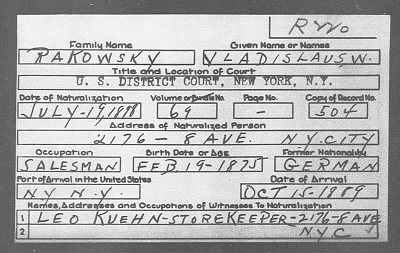 Family Name Given Name or Names
RAKOWSKY VLADISLAUS, W.
Title and Location of Court
U. S. DISTRICT COURT, NEW YORK, N.Y.
Date of Naturalization Volume or Bundle No. Page No. Copy of Record No.
69 504
Address of Naturalized Person
2176 - 8 AVE. N.Y. CITY
Occupation Birth Date or Age Former Nationality
SALESMAN FEB. 19 - 1875 GERMAN
Port of Arrival in the United States Date of Arrival
NY N.Y. OCT 15 - 1889
Names, Addresses and Occupations of Witnesses To Naturalization
1 LEO KUEHN - STOREKEEPER - 2176 - 8 AVE
2 NYC